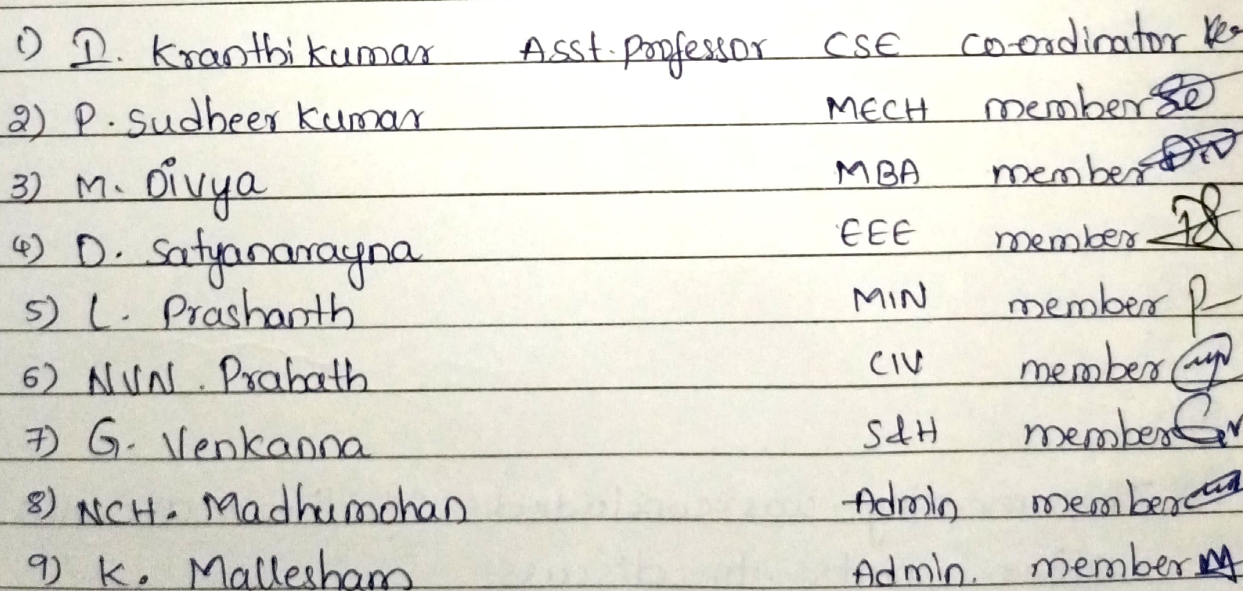 1) D. Kranthi kumar Asst. professor CSE co-ordinator
2) P. Sudheer kumar MECH member
3) M. Divya MBA member
4) D. Satyanarayna EEE member
5) L. Prashanth MIN member
6) NVN. Prabath CIV member
7) G. Venkanna S&H member
8) NCH. Madhumohan Admin member
9) K. Mallesham Admin. member